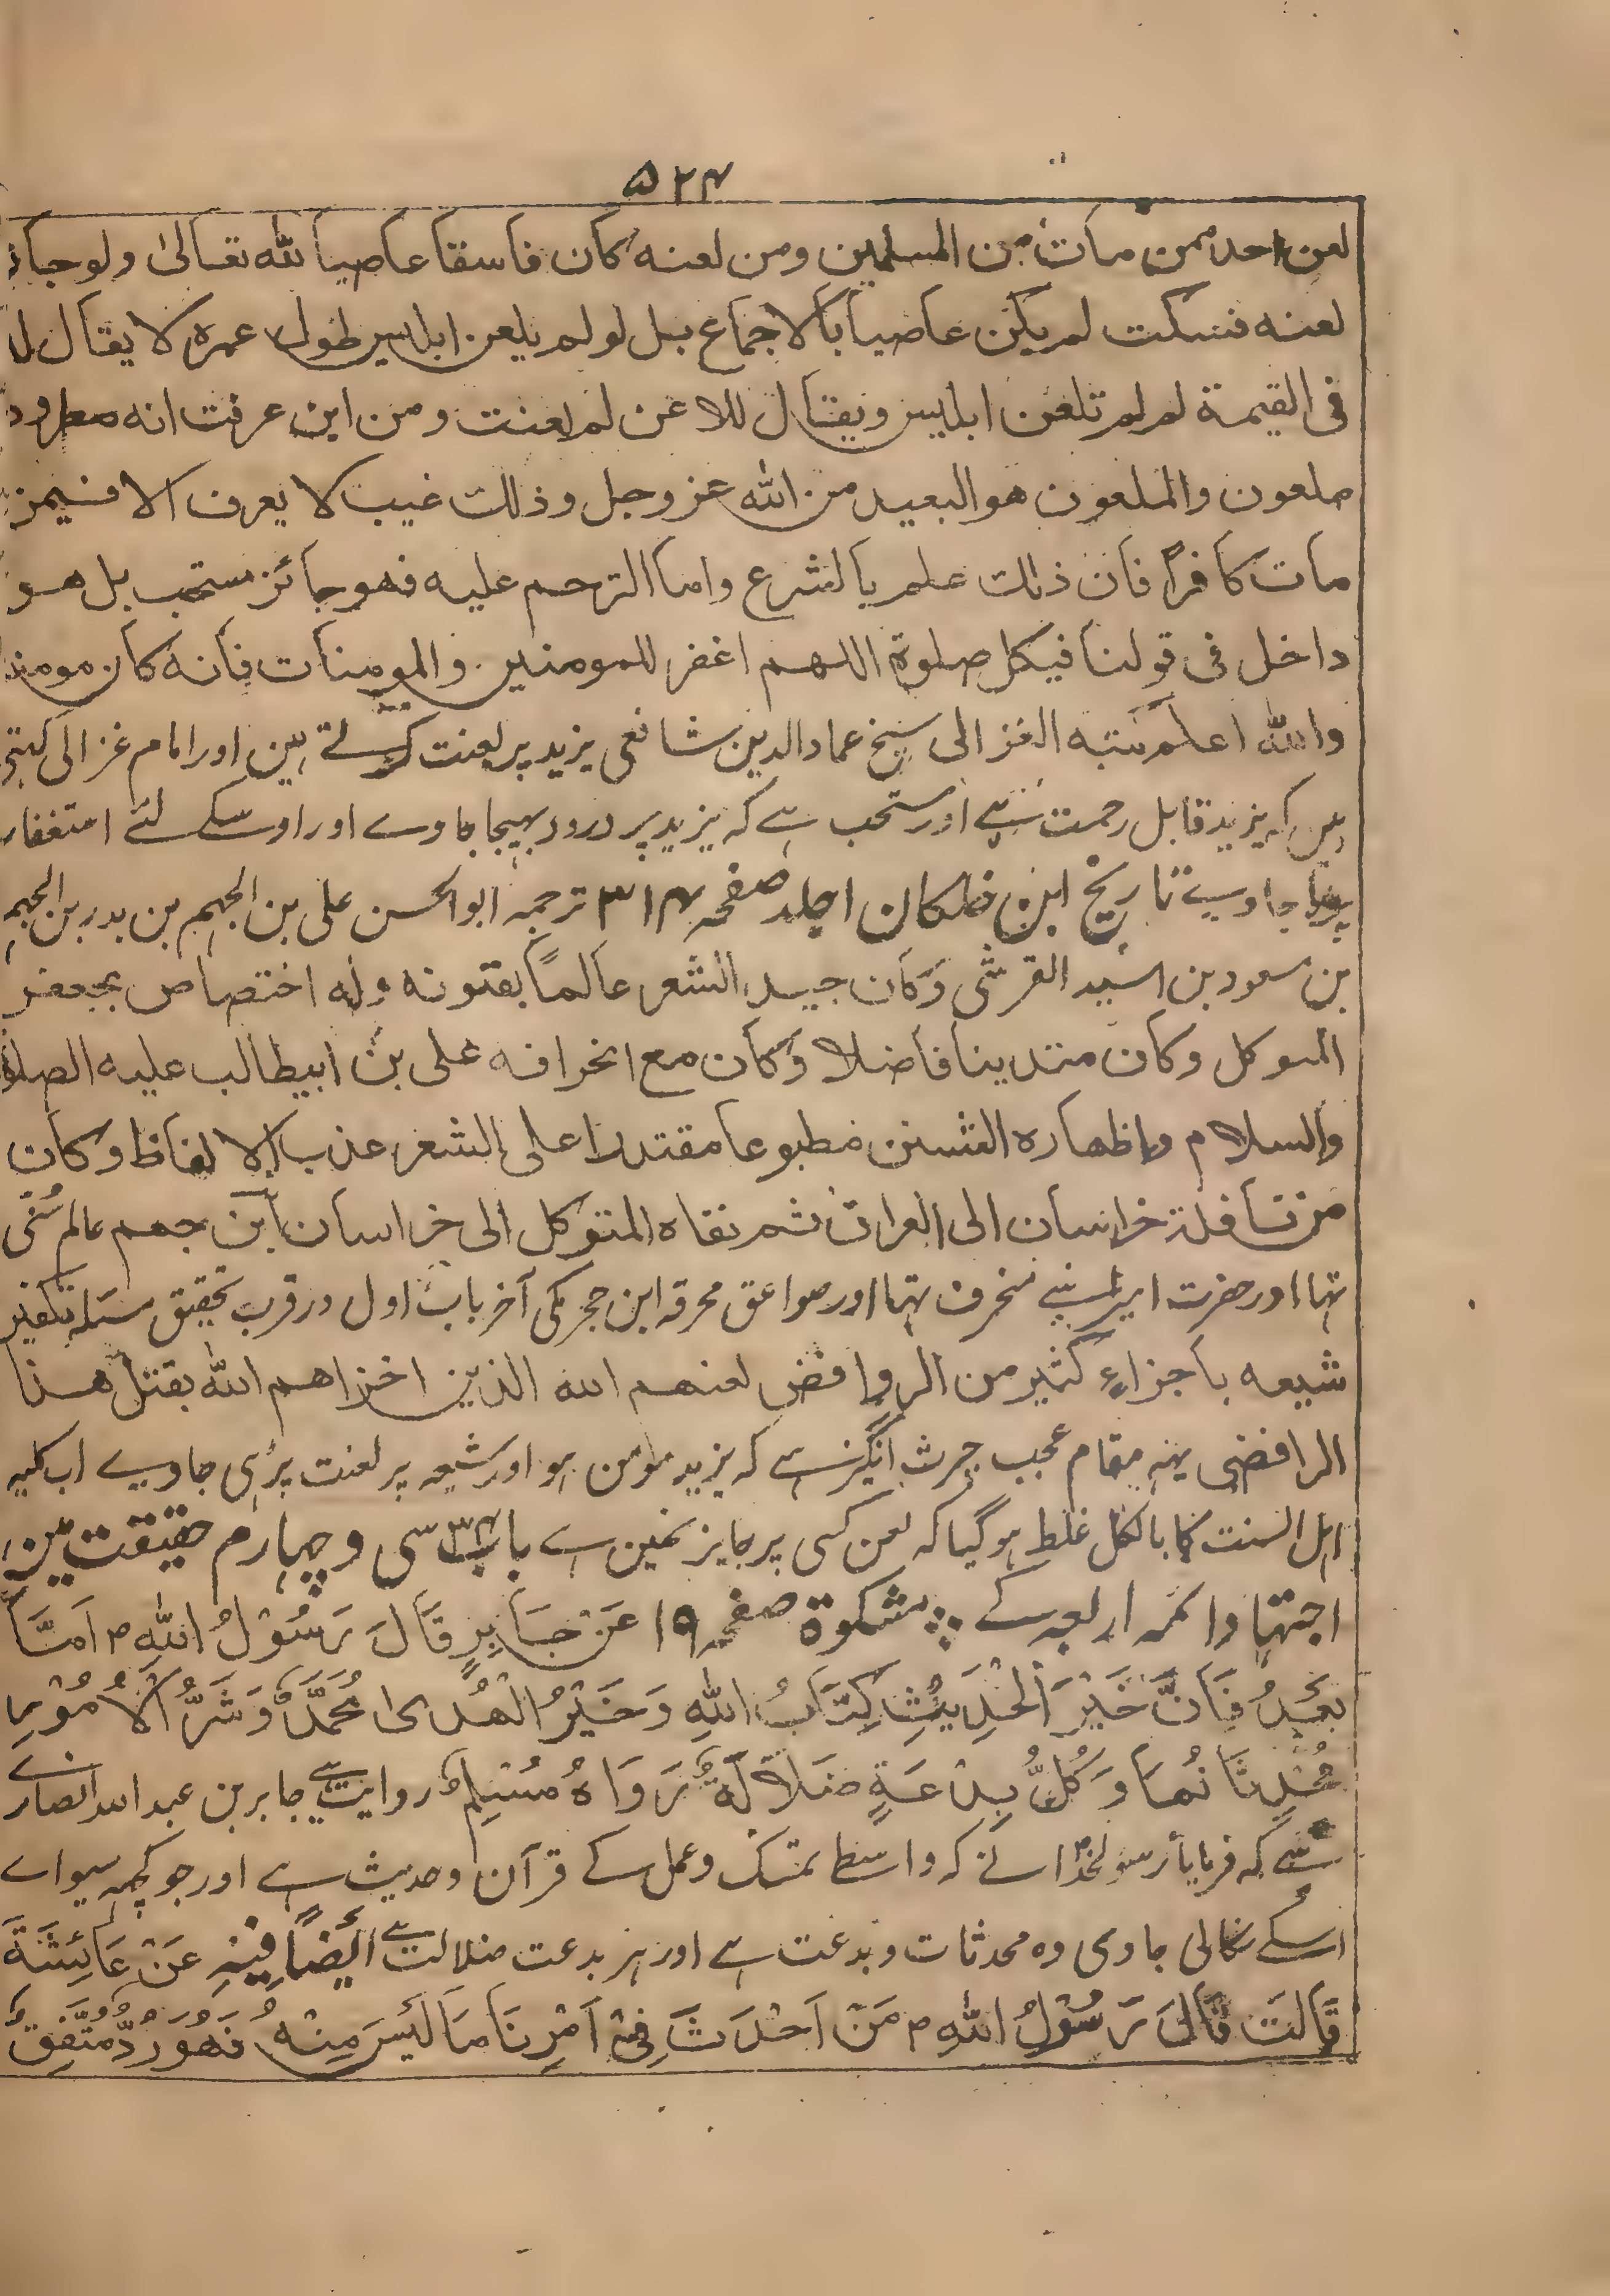 ۵۲۴
لعن احد ممن مات من المسلمين ومن لعنه كان فاسقا عاصيا لله تعالىٰ ولو جاز
لعنه فسكت لم يكن عاصيا بالاجماع بل لو لم يلعن ابليس طول عمره لا يقال له
فى القيمة لم لم تلعن ابليس ويقال للاعن لم لعنت ومن اين عرفت انه مطرود
ملعون والملعون هو البعيد من الله عز وجل وذلك غيب لا يعرف الا فيمن
مات كافرا فان ذلك علم بالشرع واما الترحم عليه فهو جائز مستحب بل هو
داخل فى قولنا فيكل صلوة اللهم اغفر للمومنين والمومنات فانه كان مومنا
والله اعلم كتبه الغزالى شیخ عماد الدین شافعی یزید پر لعنت کرتے ہین اور امام غزالی کہتے
ہیں کہ یزید قابل رحمت ہے اور مستحب ہے کہ یزید پر درود بھیجا جاوے اور اوسکے لئے استغفار
پڑھا جاوے تاریخ ابن خلکان اجلد صفحہ ۳۱۴ ترجمہ ابو الحسن علی بن الجہم بن بدر بن الجہم
بن مسعود بن اسید القرشی وکان جید الشعر عالماً بفنونه وله اختصاص بجعفر
المتوكل وكان متدينا فاضلا وكان مع انحرافه على بن ابيطالب عليه الصلوة
والسلام واظهاره التسنن مطبوعا مقتدرا على الشعر عذب الالفاظ وكان
من ناقلة خراسان الى العراق ثم نفاه المتوكل الى خراسان ابن جهم عالم سُنّی
تہا اور حضرت امیر سے منحرف تہا اور صواعق محرقہ ابن حجر مکی آخر باب اول در قرب تحقیق مسئلہ تکفیر
شیعہ باجزاء کثیر من الروافض لعنهم الله الذين اخزاهم الله بقتل هذا
الرافضی یہہ مقام عجب حیرت انگیز ہے کہ یزید مومن ہو اور شیعہ پر لعنت پڑہی جاوے اب کلیہ
اہل السنت کا بالکل غلط ہوگیا کہ لعن کسی پر جایز نہین ہے باب ۳۴ سی و چہارم حقیقت مین
اجتہاد ائمہ اربعہ کے ؞ مشکوة صفحہ ۱۹ عَنْ جَابِرٍ قَالَ رَسُوْلُ اللهِ م اَمَّا
بَعْدُ فَاِنَّ خَيْرَ الْحَدِيْثِ كِتَابُ اللهِ وَخَيْرُ الْهُدىٰ مُحَمَّدٌ وَشَرُّ الْاُمُوْرِ
مُحْدِثَاتُهَا وَكُلُّ بِدْعَةٍ ضَلَالَةٌ رَوَاهُ مُسْلِمٌ روایت ہے جابر بن عبد اللہ انصاری
سے کہ فرمایا رسولخدا نے کہ واسطے تمسک و عمل کے قرآن و حدیث ہے اور جو کچہہ سواے
اسکے نکالی جاوی وہ محدثات و بدعت ہے اور ہر بدعت ضلالت ہے اَيْضًا فِيْهِ عَنْ عَائِشَةَ
قَالَتْ قَالَ رَسُوْلُ اللهِ م مَنْ اَحْدَثَ فِىْ اَمْرِنَا مَا لَيْسَ مِنْهُ فَهُوَ رَدٌّ مُتَّفَقٌ